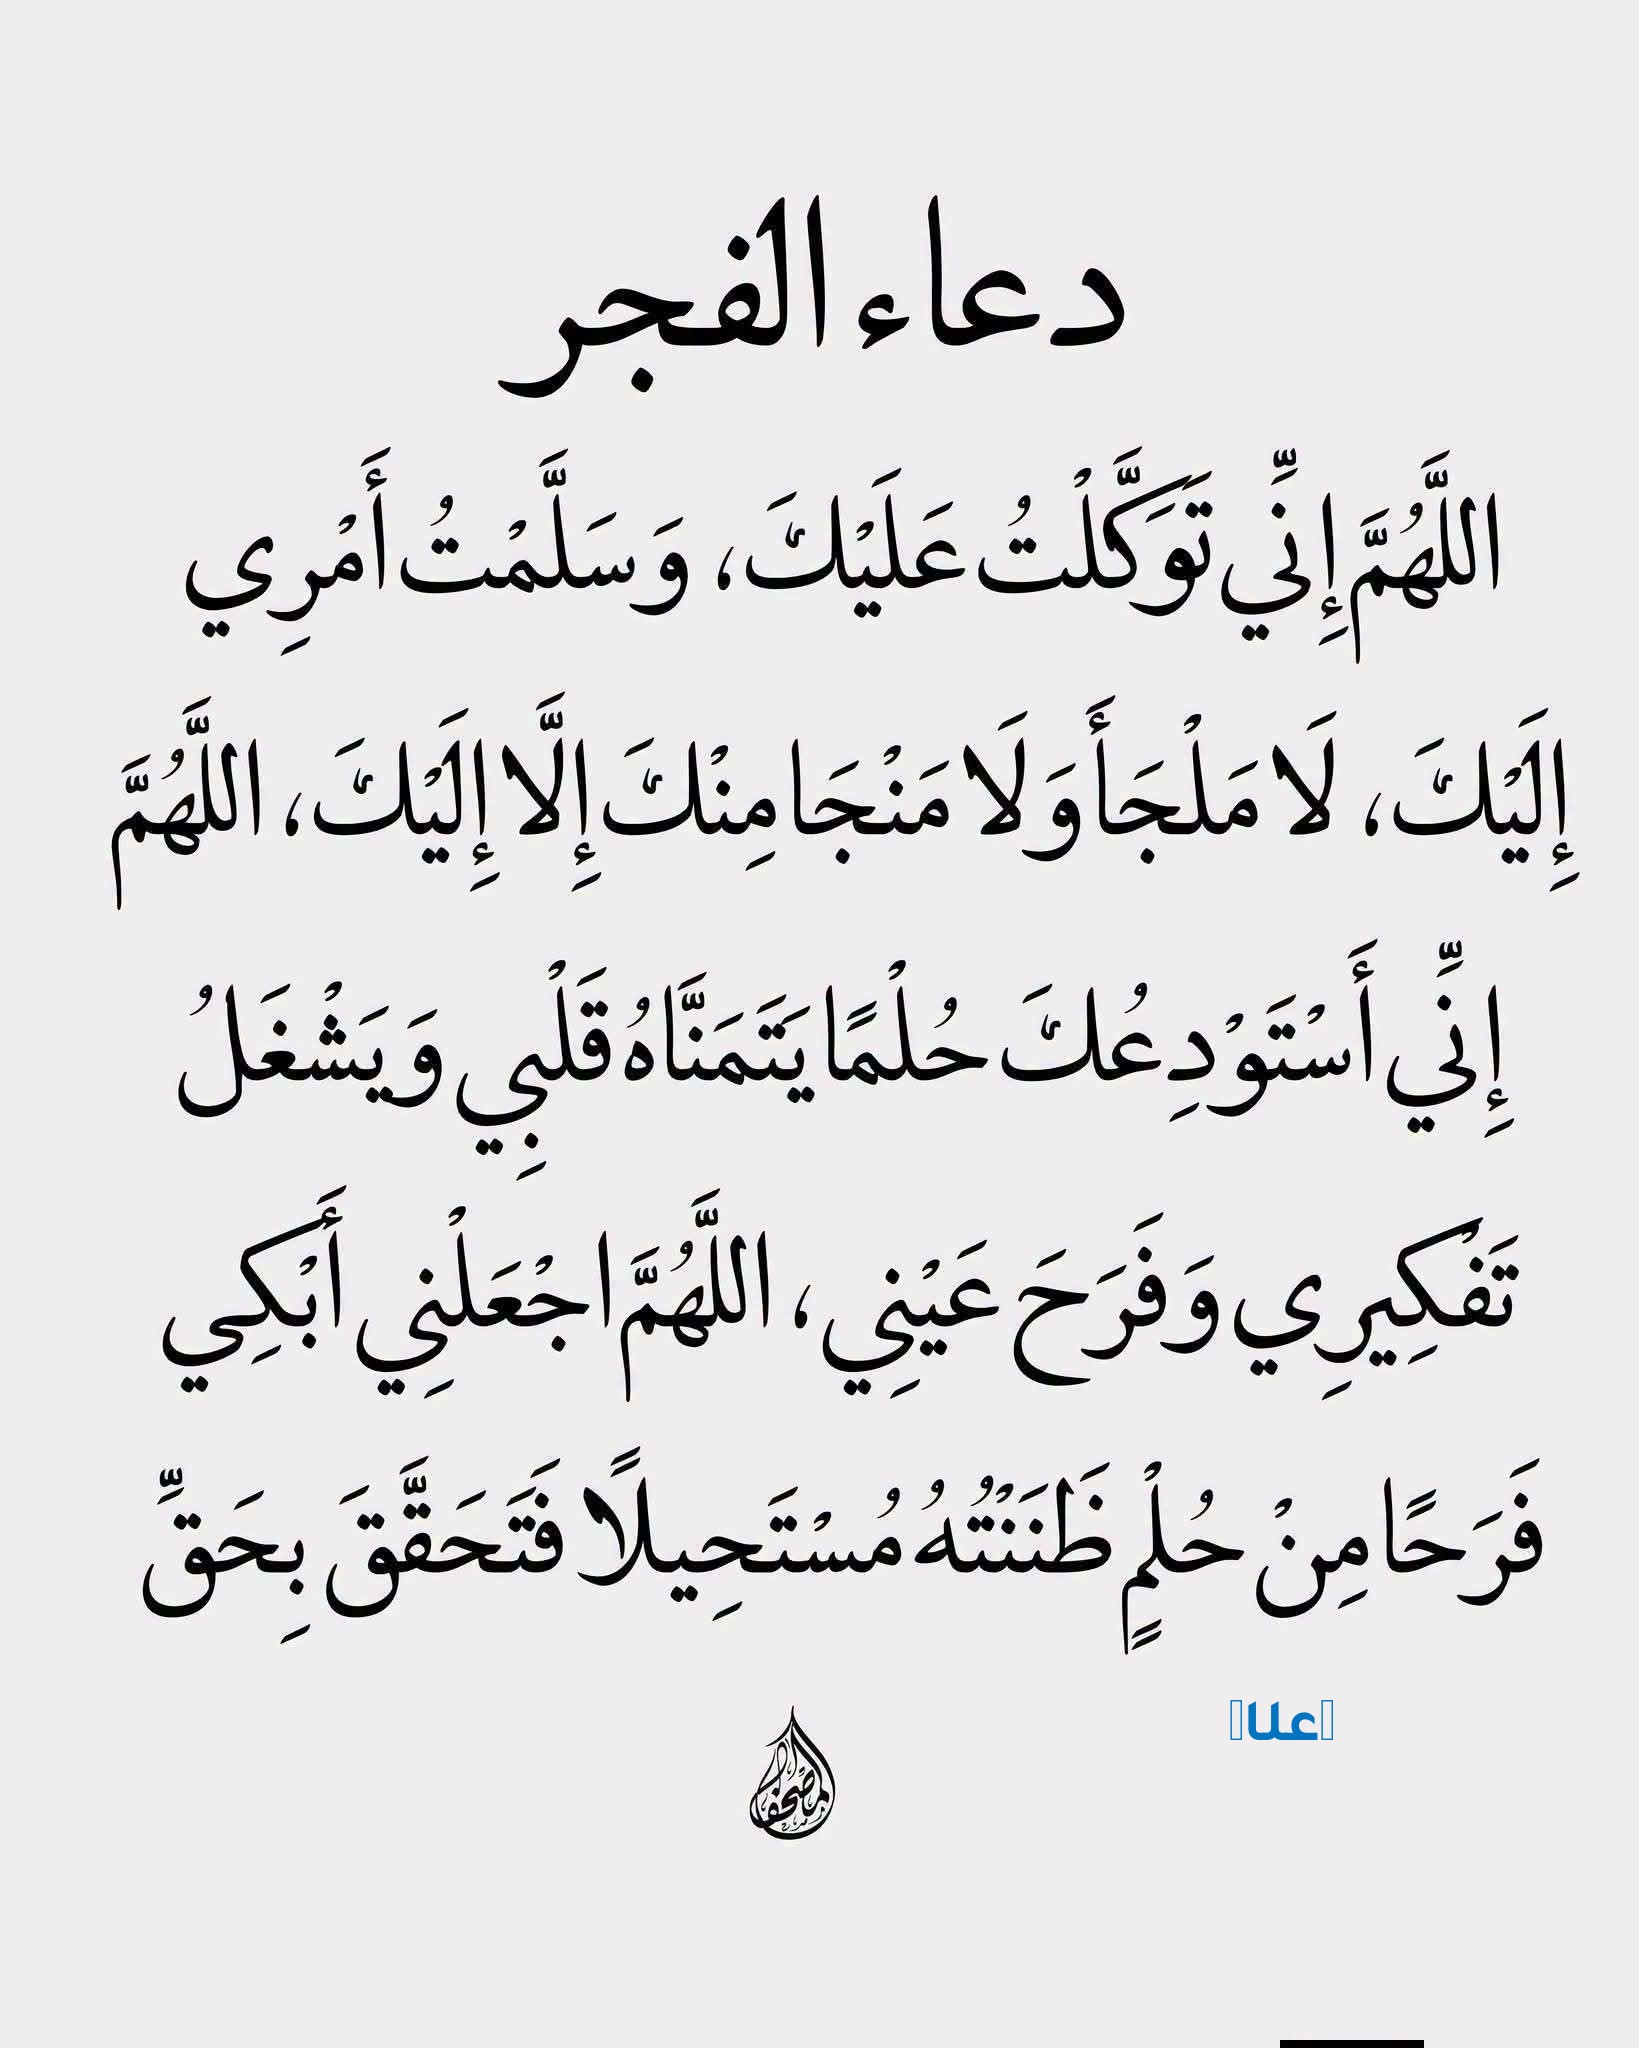 دعاء الفجر
اللَّهُمَّ إِنِّي تَوَكَّلْتُ عَلَيْكَ، وَسَلَّمْتُ أَمْرِي
إِلَيْكَ، لَا مَلْجَأَ وَلَا مَنْجَا مِنْكَ إِلَّا إِلَيْكَ، اللَّهُمَّ
إِنِّي أَسْتَوْدِعُكَ حُلْمًا يَتَمَنَّاهُ قَلْبِي وَيَشْغَلُ
تَفْكِيرِي وَفَرَحَ عَيْنِي، اللَّهُمَّ اجْعَلْنِي أَبْكِي
فَرَحًا مِنْ حُلْمٍ ظَنَنْتُهُ مُسْتَحِيلًا فَتَحَقَّقَ بِحَقِّ